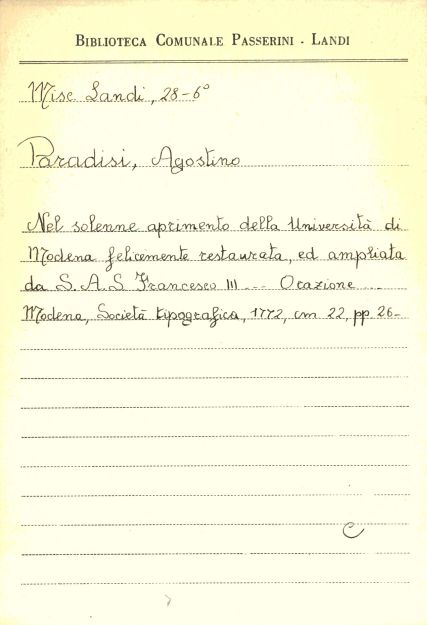 BIBLIOTECA COMUNALE PASSERINI - LANDI
Misc. Landi, 28-6°
Paradisi, Agostino
Nel solenne aprimento della Università di
Modena felicemente restaurata, ed ampliata
da S. A. S. Francesco III ... Orazione ...
Modena, Società tipografica, 1772, cm 22, pp. 26-
C